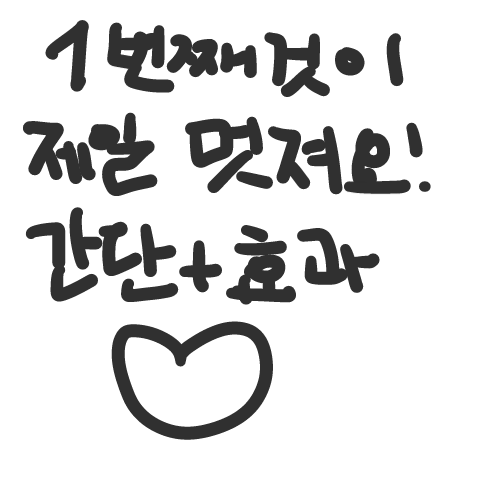 1번째것이
제일 멋져요!
간단+효과